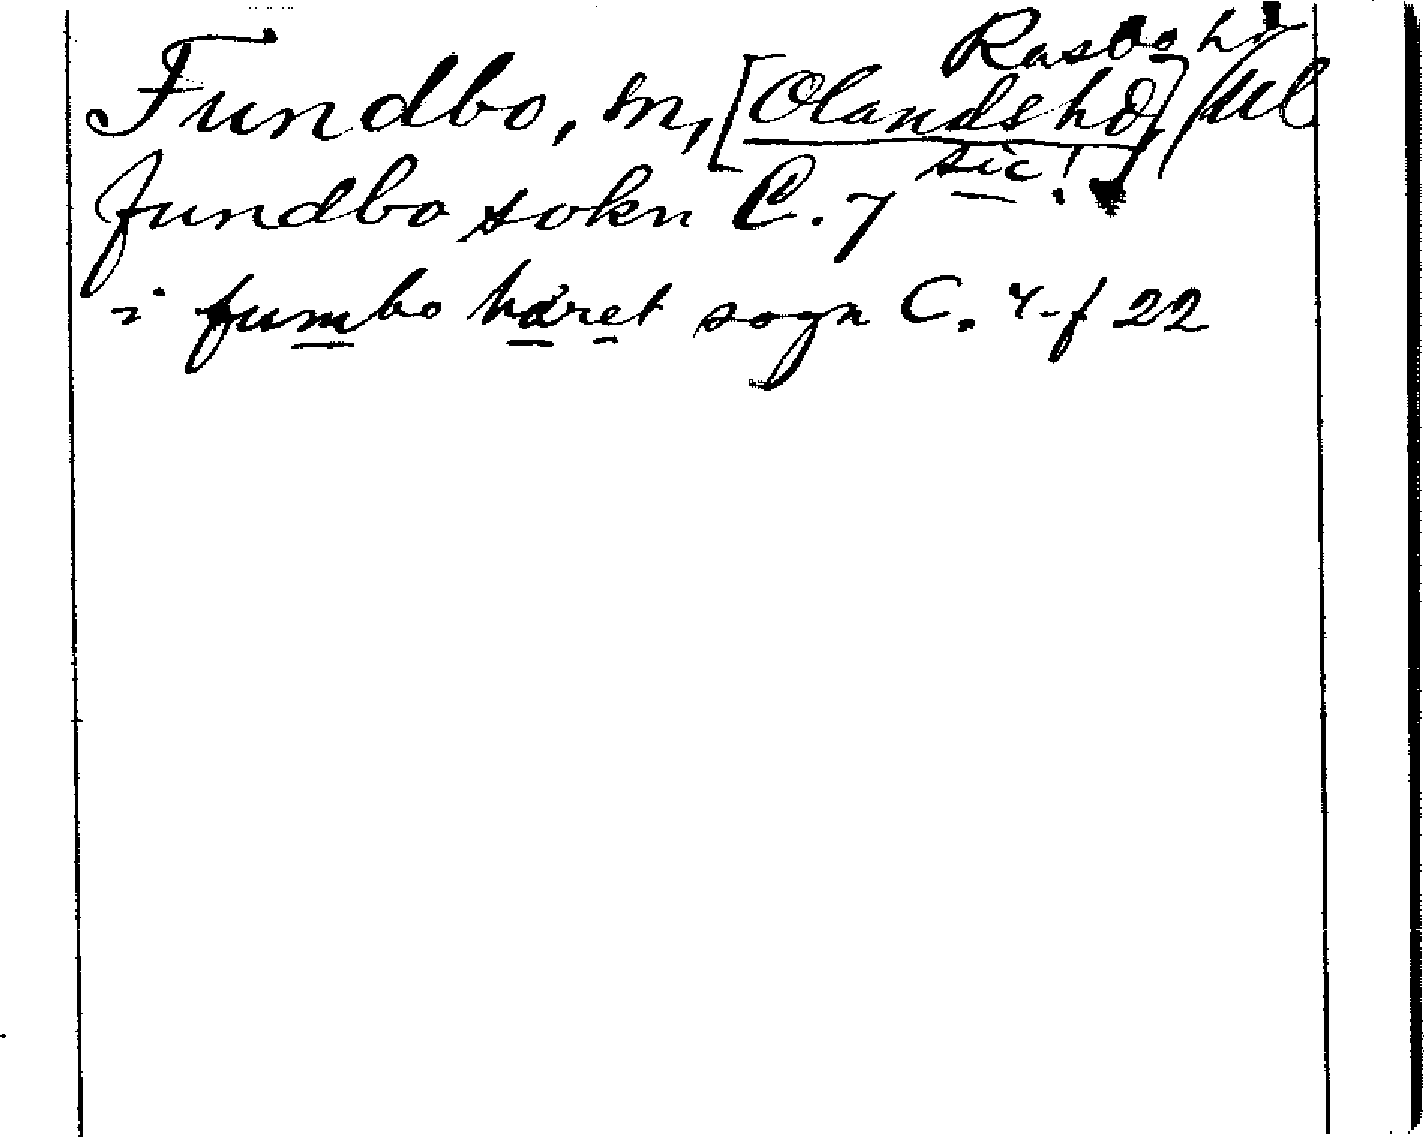 Rasbo hd
Fundbo, sn, [Olandshd] Upl
sic!
fundbo sokn C. 7
i fumbo häret sogn C. 4-f 22